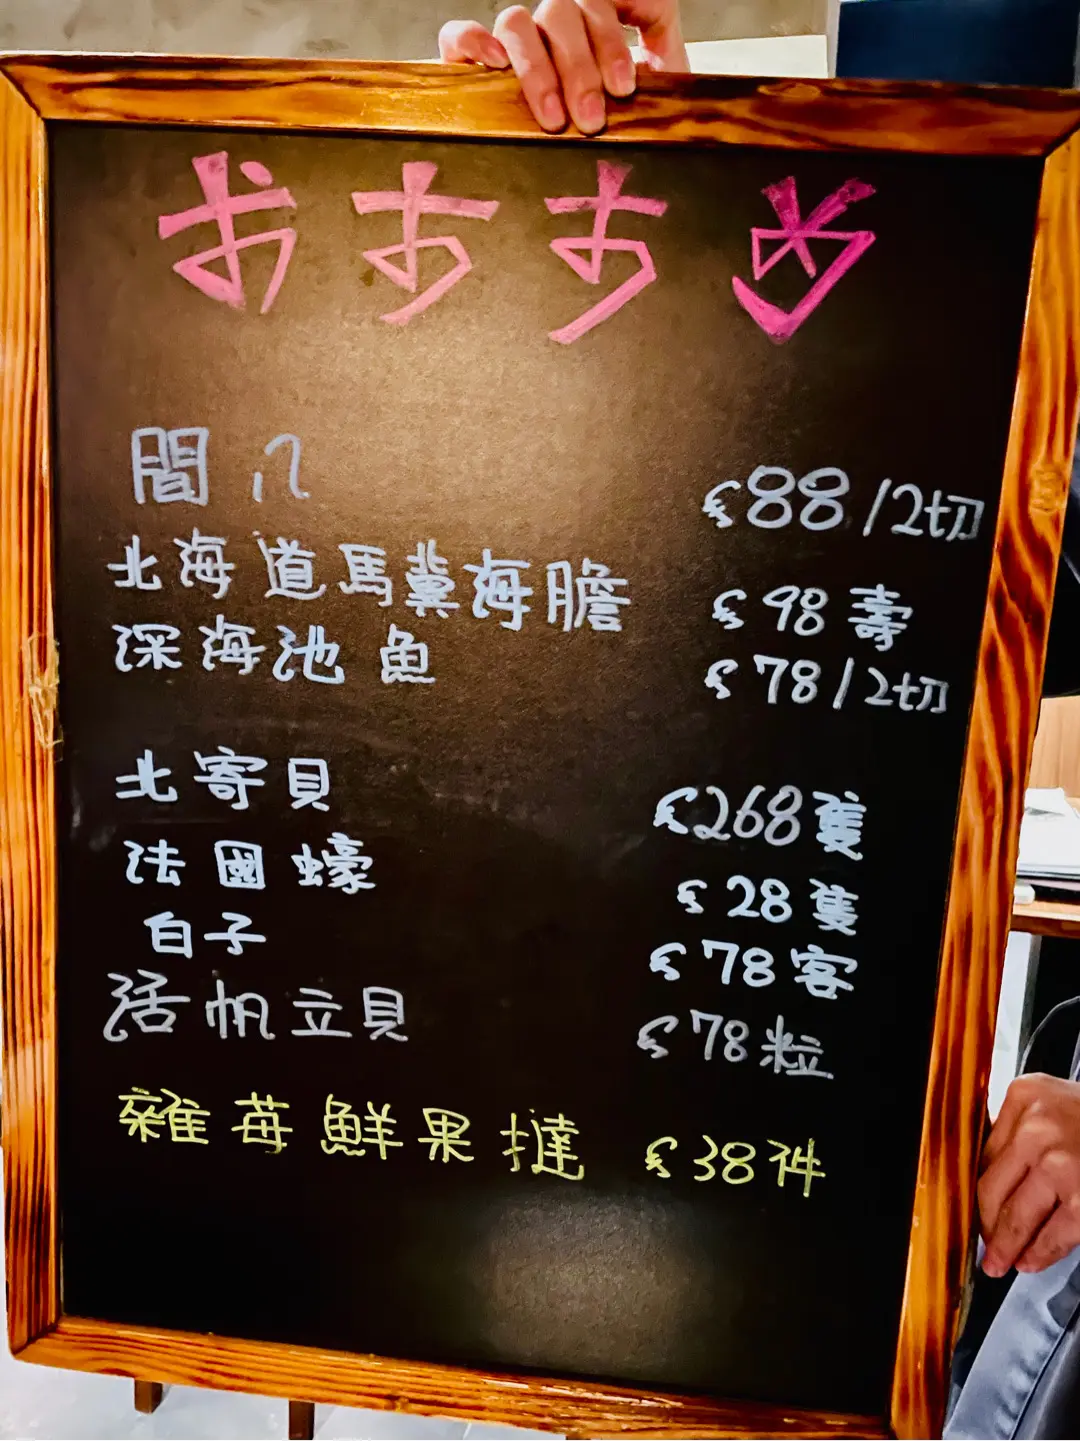 おすすめ
間八 $88/2切
北海道馬冀海膽 $98壽
深海池魚 $78/2切
北寄貝 $268隻
法國蠔 $28隻
白子 $78客
活帆立貝 $78粒
雜苺鮮果撻 $38件